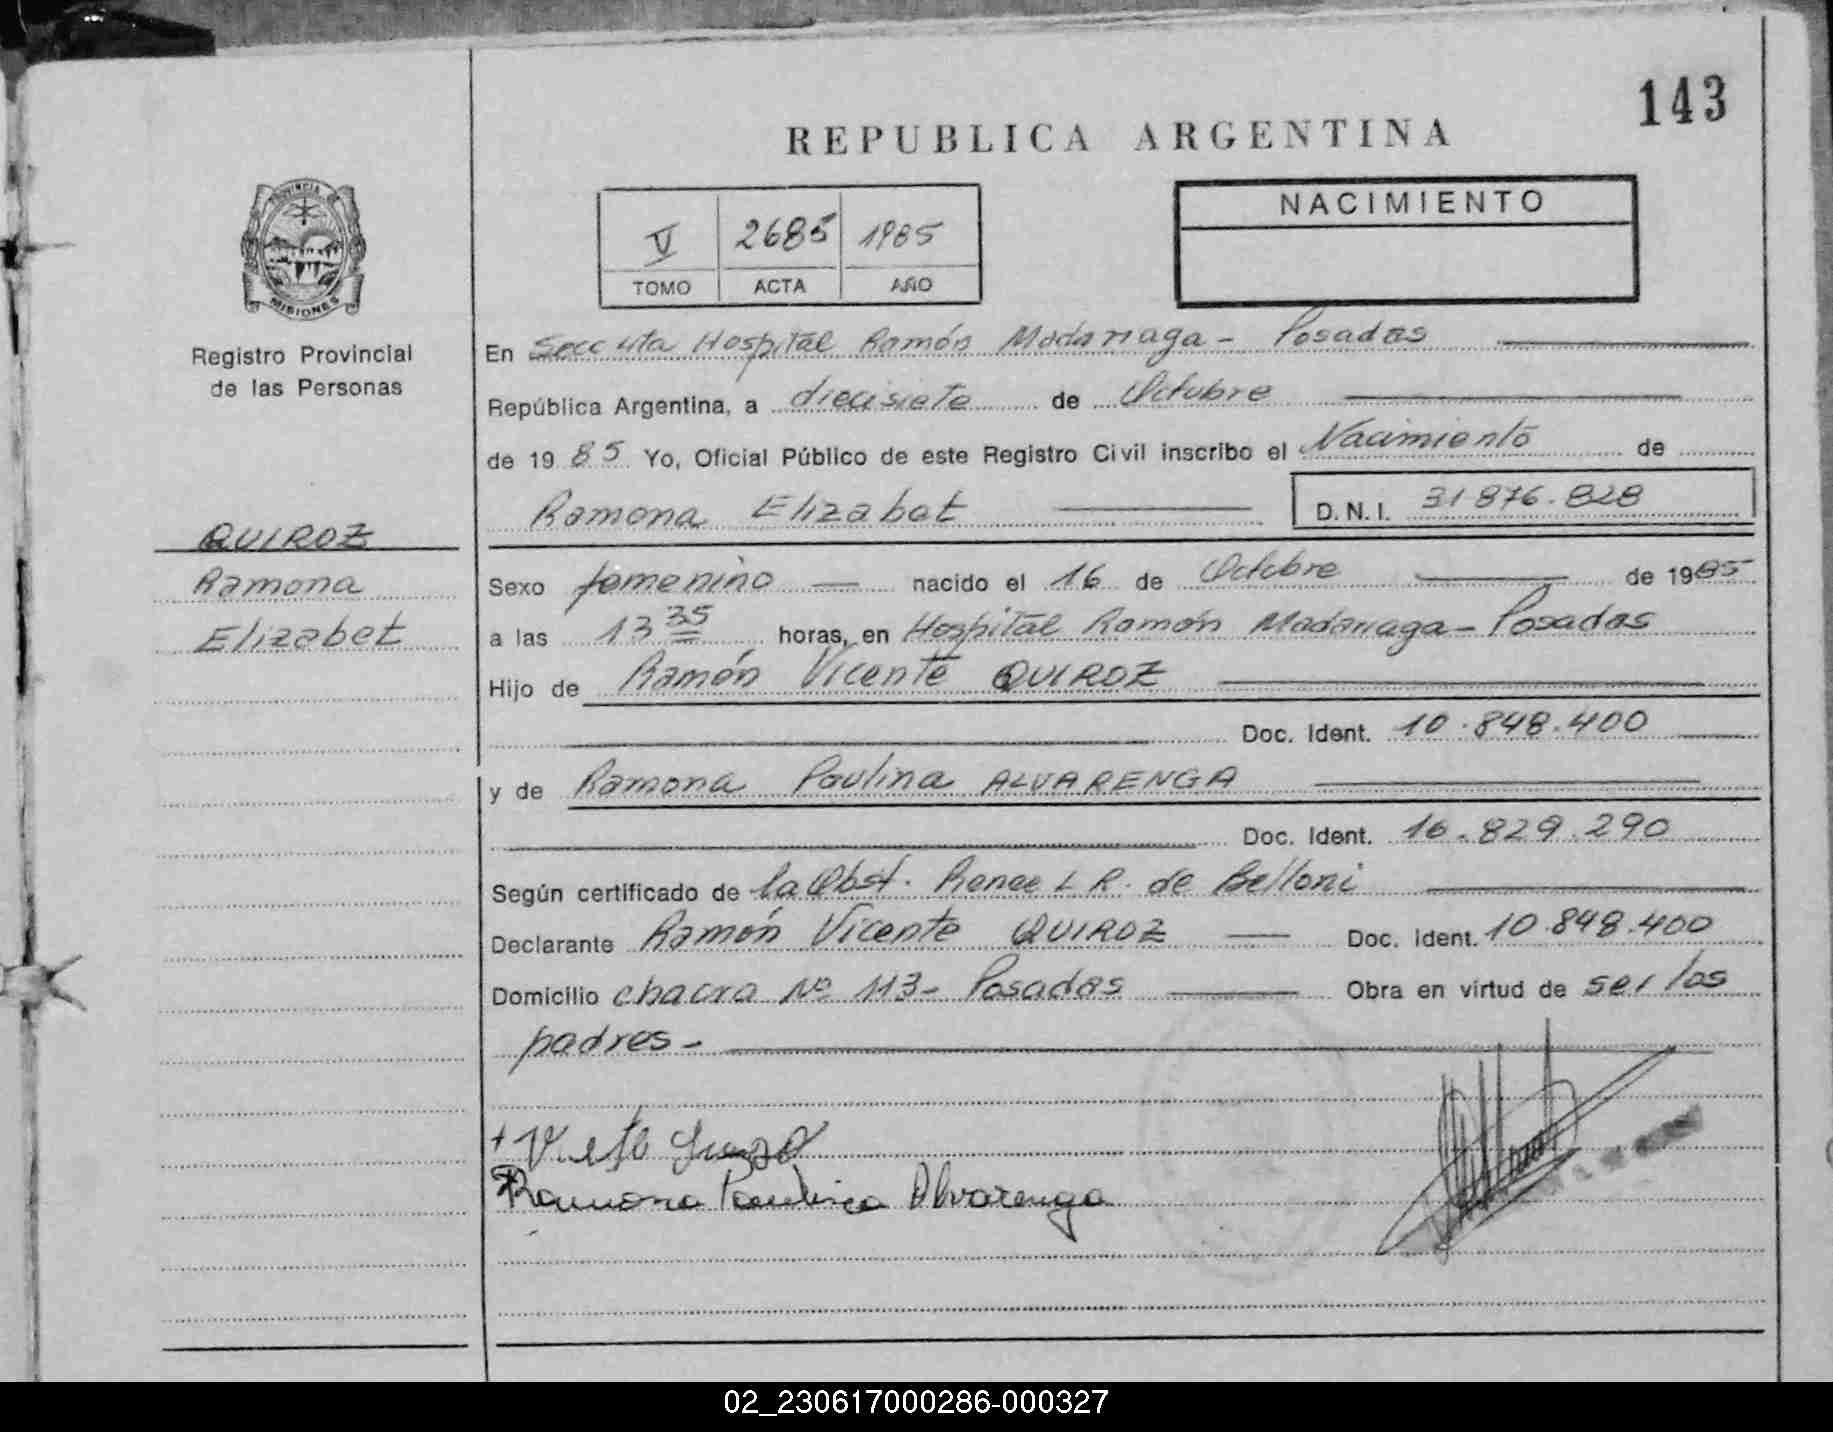 143
REPUBLICA ARGENTINA
PROVINCIA DE
MISIONES
Registro Provincial
de las Personas
V 2685 1985
TOMO ACTA AÑO
NACIMIENTO
En Secc 4ta Hospital Ramón Madariaga - Posadas
República Argentina, a diecisiete de Octubre
de 1985 Yo, Oficial Público de este Registro Civil inscribo el Nacimiento de
Ramona Elizabet D.N.I. 31876.828
QUIROZ
Ramona
Elizabet
Sexo femenino nacido el 16 de Octubre de 1985
a las 13 35 horas, en Hospital Ramón Madariaga - Posadas
Hijo de Ramón Vicente QUIROZ
Doc. Ident. 10.848.400
y de Ramona Paulina ALVARENGA
Doc. Ident. 16.829.290
Según certificado de la Obst. Renee L R. de Belloni
Declarante Ramón Vicente QUIROZ Doc. Ident. 10.848.400
Domicilio chacra Nº 113- Posadas Obra en virtud de ser los
padres -
Ramona Paulina Alvarenga
02_230617000286-000327